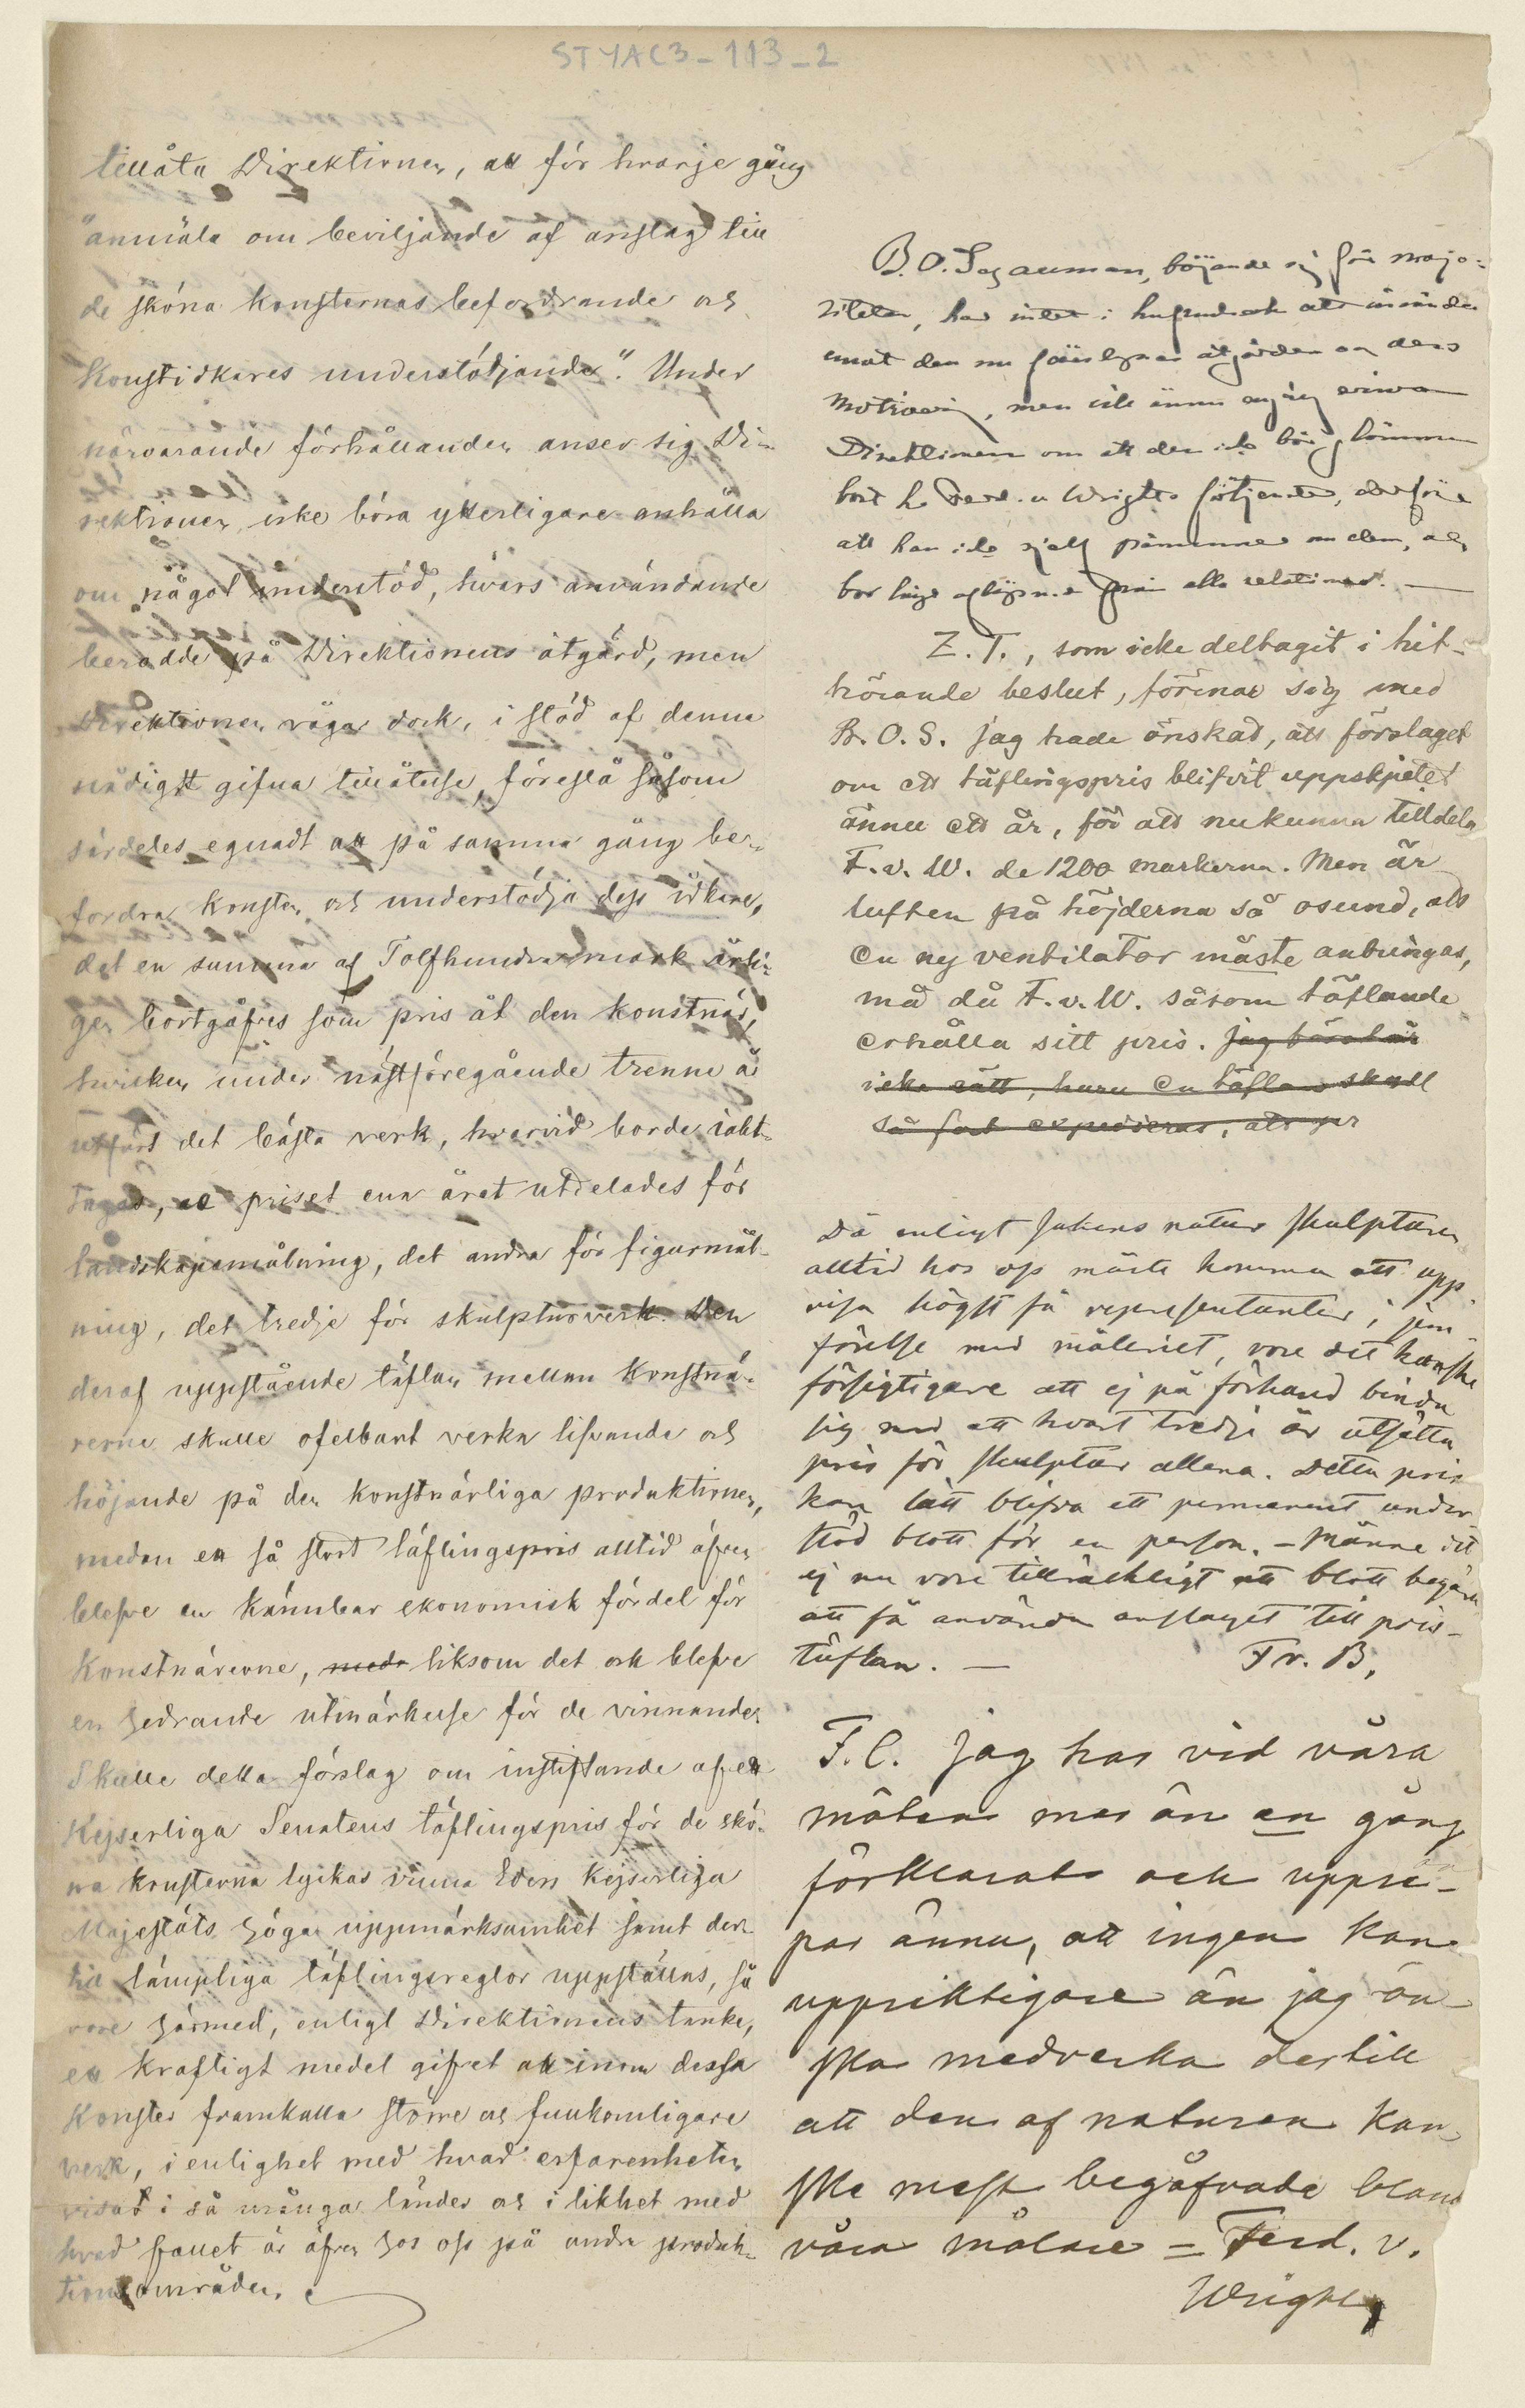 STYAC3-113-2
tillåta Direktionen, att för hvarje gång
"anmäla om beviljande af anslag till
de sköna konsternas befordrande och
Konstidkares understödjande". Under
närvarande förhållanden anser sig Di-
rektionen icke böra ytterligare anhålla
om något understöd, hvars användande
berodde på Direktionens åtgärd, men
Direktionen vågar dock, i stöd af denna
nådigst gifna tillåtelse, föreslå såsom
särdeles egnadt att på samma gång be-
fordra konsten och understödja dess idkare,
det en summa af Tolfhundra mark årli-
gen bortgåfves som pris åt den konstnär,
hvilken under nästföregående trenne år
utfört det bästa verk, hvarvid borde iakt-
tagas, att priset ena året utdelades för
landskapsmålning, det andra för figurmål-
ning, det tredje för skulpturverk. Den
deraf uppstående täflan mellan Konstnä-
rerne skulle ofelbart verka lifvande och
höjande på den konstnärliga produktionen,
medan ett så stort täflingspris alltid äfven
blefve en kännbar ekonomisk fördel för
Konstnärerne, meda liksom det ock blefve
en hedrande utmärkelse för de vinnande.
Skulle detta förslag om instiftande af ett
Kejserliga Senatens täflingspris för de skö-
na konsterna lyckas vinna Eders Kejserliga
Majestäts höga uppmärksamhet samt der-
till lämpliga täflingsreglor uppställas, så
vore härmed, enligt Direktionens tanke,
ett kraftigt medel gifvet att inom dessa
Konster framkalla större och fullkomligare
verk, i enlighet med hvad erfarenheten
visat i så många länder och i likhet med
hvad fallet är äfven hos oss på andra produk-
tionsområden.
B. O. Schauman, böjande sig för majo-
riteten, har intet i hufvudsak att invända
emot den nu föreslagna åtgärden och dess
motivering, men vill ännu en gång erinra
Direktionen om att den icke bör glömma
bort hr Ferd. v Wrights förtjenster, derföre
att han icke sjelf påminner om dem, och
bor långt aflägsnad från alla relationer. —
Z. T., som icke deltagit i hit-
hörande beslut, förenar sig med
B. O. S. Jag hade önskad, att förslaget
om ett täflingspris blifvit uppskjutet
ännu ett år, för att nu kunna tilldela
F. v. W. de 1200 markerna. Men är
luften på höjderna så osund, att
en ny ventilator måste anbringas,
må då F. v. W. såsom täflande
erhålla sitt pris. Jag
icke rätt, huru en täflan skall
så fort expedieras, att
Då enligt sakens natur skulpturen
alltid hos oss måste komma att upp-
visa högst få representanter, i jem-
förelse med måleriet, vore det kanske
försigtigare att ej på förhand binda
sig med att hvart tredje år utsätta
pris för skulptur allena. Detta pris
kan lätt blifva ett permanent under-
stöd blott för en person. — Månne det
ej nu vore tillräckligt att blott begära
att få använda anslaget till pris-
täflan. — Fr. B.
F. C. Jag har vid våra
möten mer än en gång
förklarat och uppre-
par ännu, att ingen kan
uppriktigare än jag ön-
ska medverka dertill
att den af naturen kan-
ske mest begåfvade bland
våra målare = Ferd. v.
Wright,